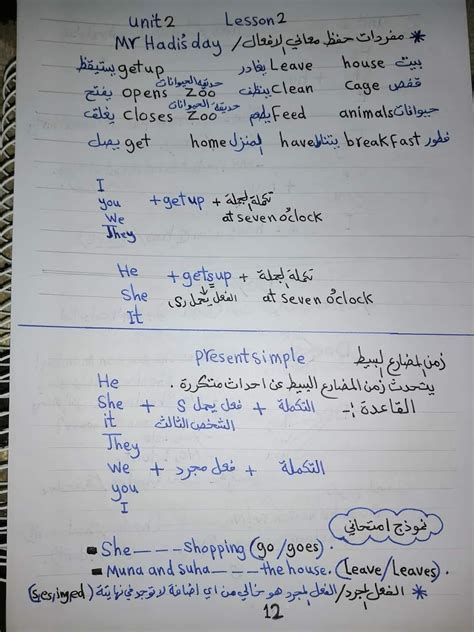 unit 2 Lesson 2
* مفردات حفظ معاني الافعال / Mr Hadi's day
بيت house يغادر Leave يستيقظ get up
قفص Cage ينظف clean حديقة الحيوانات Zoo يفتح opens
حيوانات animals يطعم Feed حديقة الحيوانات Zoo يغلق closes
فطور breakfast يتناول have المنزل home يصل get
I
you + get up + تكملة الجملة
We at seven o'clock
They
He + gets up + تكملة الجملة
She الفعل يحمل at seven o'clock
It
زمن المضارع البسيط present simple
يتحدث زمن المضارع البسيط عن احداث متكررة .
He
She + فعل يحمل S + التكملة القاعدة :-
it الشخص الثالث
They
we + فعل مجرد + التكملة
you
I
نموذج امتحاني
She _ _ _ shopping (go/goes) .
Muna and Suha _ _ _ the house. (Leave/Leaves) .
* الفعل المجرد / الفعل المجرد هو خالي من اي اضافة لا توجد في نهايتة (s,es,ing,ed)
12